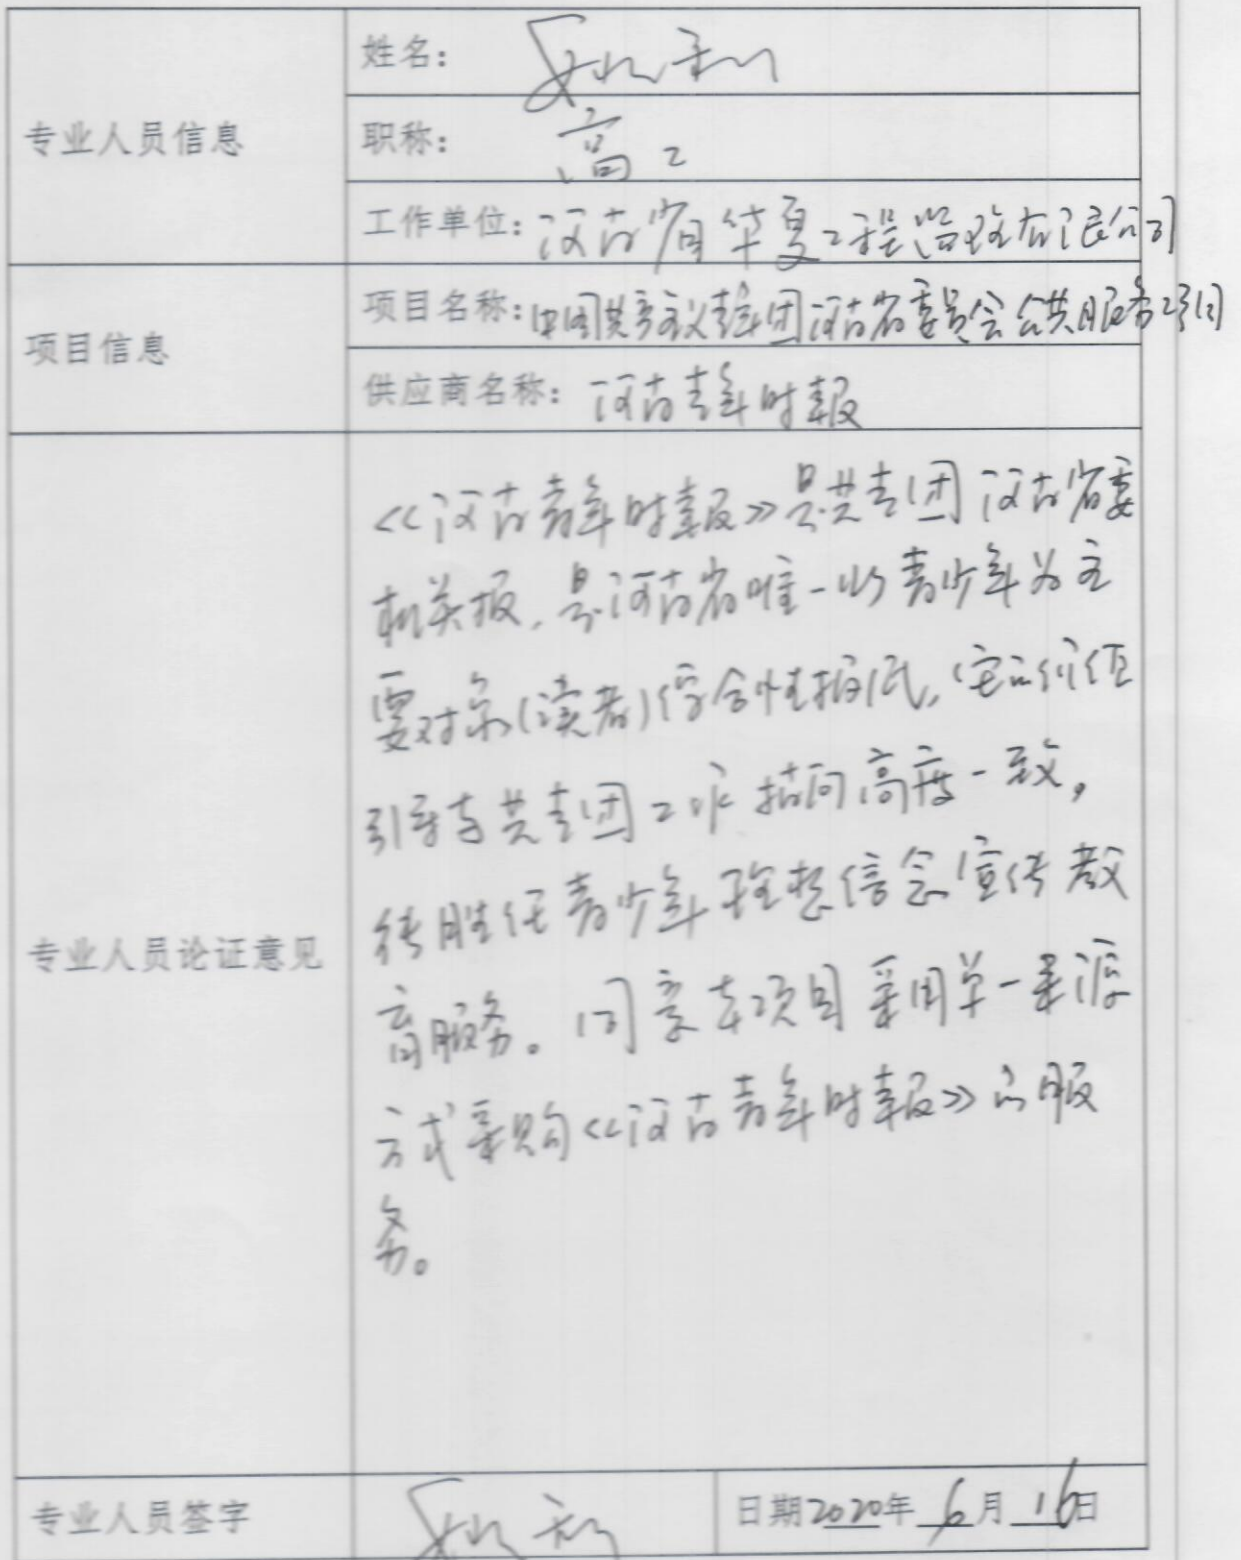 姓名：
专业人员信息
职称：高工
工作单位：河南省华夏工程监理有限公司
项目信息
项目名称：中国共产主义青年团河南省委员会公共服务
供应商名称：河南青年时报
专业人员论证意见
《河南青年时报》是共青团河南省委
机关报，是河南省唯一以青少年为主
要对象(读者)综合性报纸，它的价值
引导与共青团工作指向高度一致，
能胜任青少年理想信念宣传教
育服务。同意本项目采用单一来源
方式采购《河南青年时报》的服
务。
专业人员签字
日期2020年6月16日